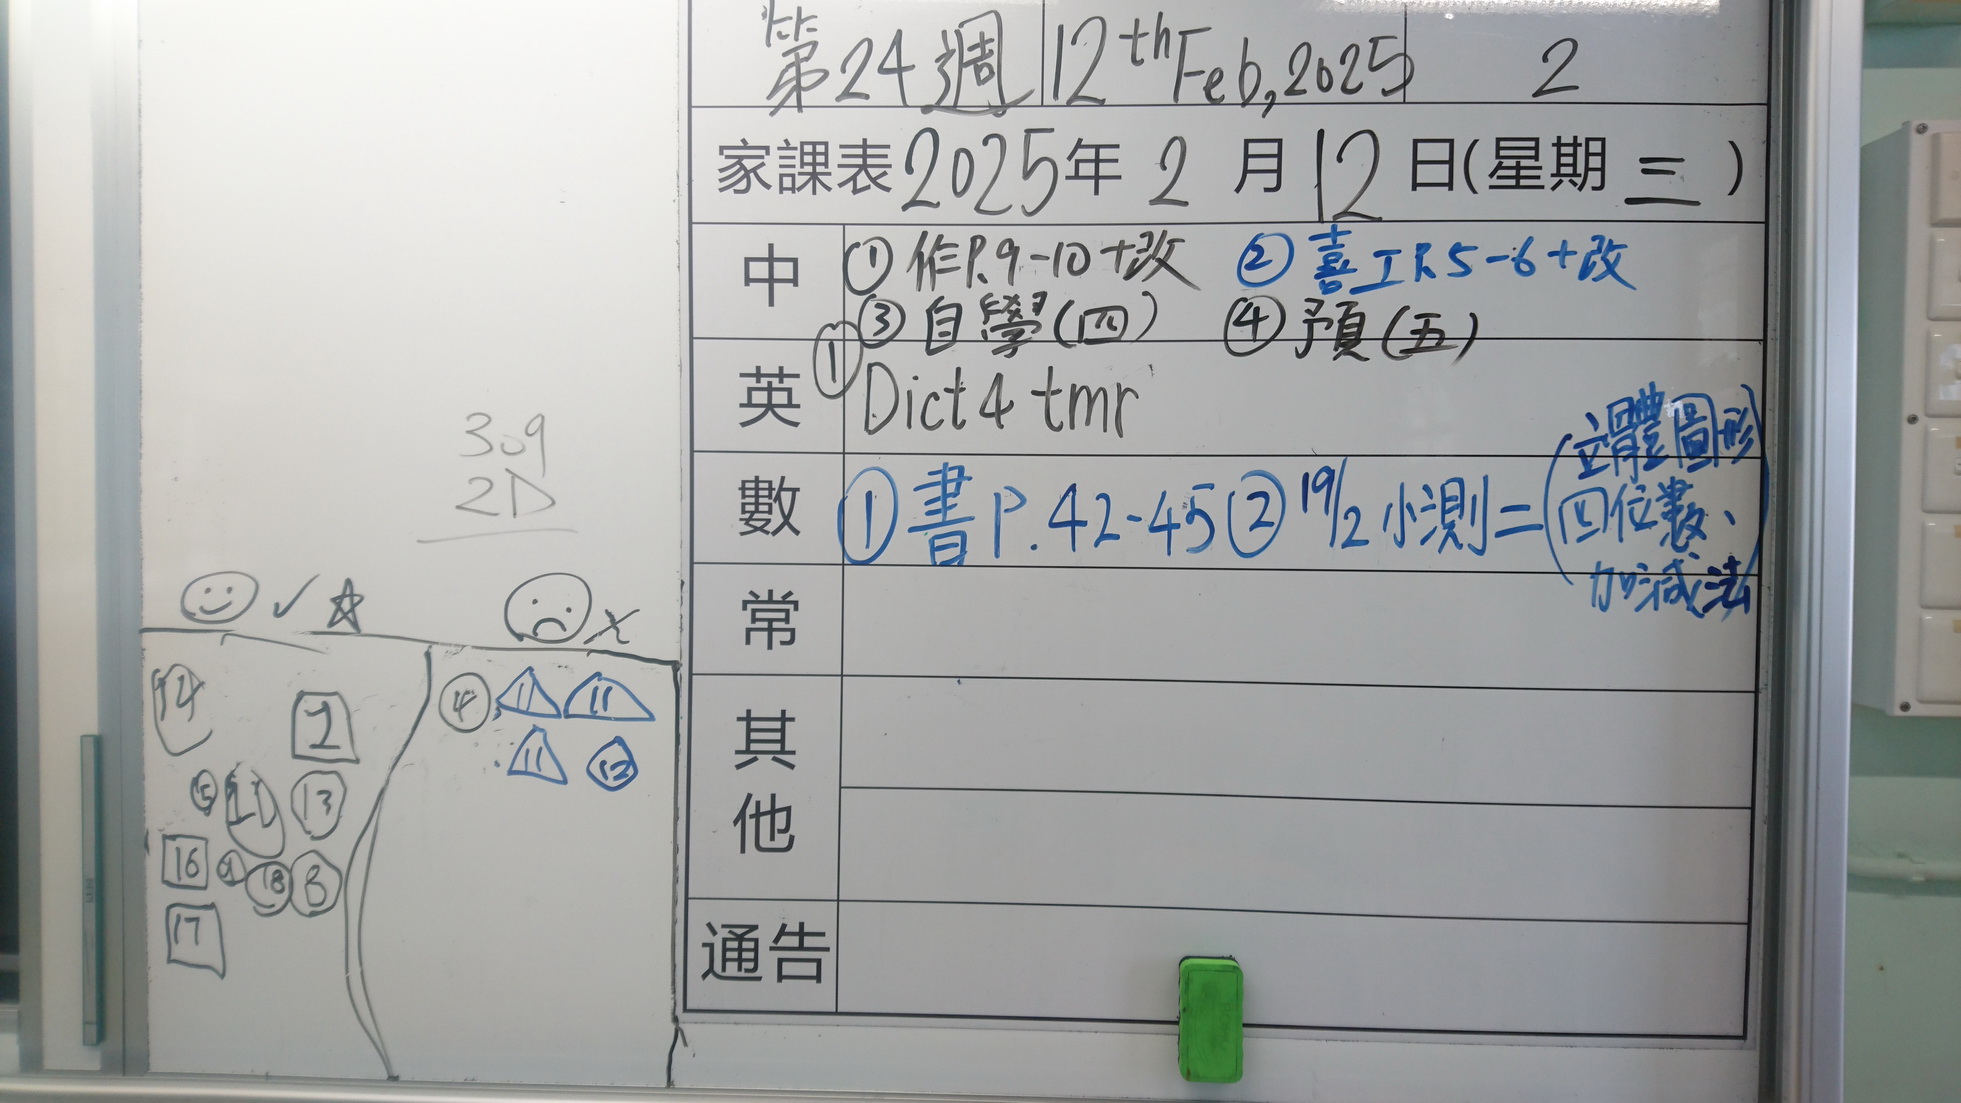 第24週 12th Feb, 2025 2
家課表 2025年 2 月 12 日(星期 三 )
中 ① 作P.9-10+改 ② 喜工P.5-6+改
③ 自學(四) ④ 預(五)
英 ① Dict 4 tmr
數 ① 書P.42-45 ② 19/2 小測二
(立體圖形
四位數、
加減法)
常
其他
通告
309
2D
✓ ☆ X
14 1
15 11 13
16 21 18 8
17
4 11 11
11 12